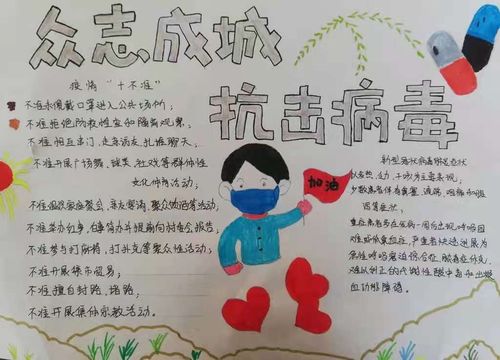 众志成城
抗击病毒
疫情“十不准”
不准未佩戴口罩进入公共场所;
不准拒绝防疫检查和隔离观察。
不准相互串门、走亲访友、扎堆聊天。
不准开展广场舞、棋类、社戏等群体性
文化体育活动;
不准组织家庭聚会、亲友宴请、聚众吃酒等活动;
不准举办红事,白事简办并提前向村委会报告;
不准参与打麻将、打扑克等聚众性活动;
不准开展集市贸易;
不准擅自封路、堵路;
不准开展集体宗教活动。
加油
新型冠状病毒肺炎症状
以发热、乏力、干咳为主要表现,
少数患者伴有鼻塞、流涕、咽痛和腹
泻等症状。
重症患者多在发病一周后出现呼吸困
难或低氧血症,严重者快速进展为
急性呼吸窘迫综合征、脓毒症休克、
难以纠正的代谢性酸中毒和出凝
血功能障碍。